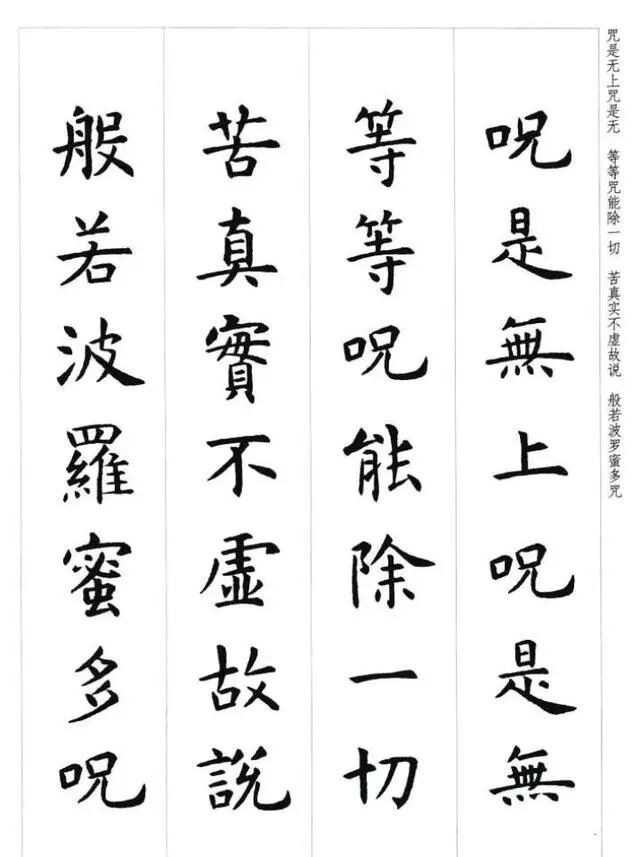 咒是无上咒是无　等等咒能除一切　苦真实不虚故说　般若波罗蜜多咒
呪是無上呪是無
等等呪能除一切
苦真實不虛故說
般若波羅蜜多呪